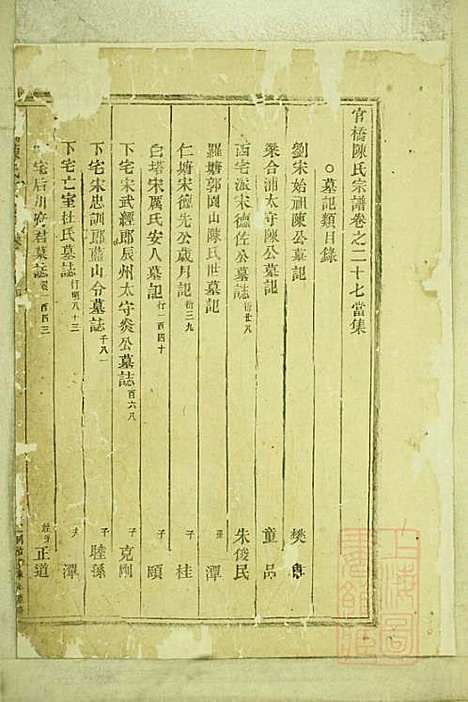 官橋陳氏宗譜卷之二十七當集
○墓記類目錄
劉宋始祖陳公墓記 樊
梁合浦太守陳公墓記 童品
西宅派宋德佐公墓誌 朱俊民
羅塘郭園山陳氏世墓記 孫 潭
仁塘宋德先公歲月記 衍三九 子 桂
白塔宋厲氏安人墓記 行一百四十 子 頤
下宅宋武經郎辰州太守炎公墓誌 百六八 子 克剛
下宅宋忠訓郎藍山公墓誌 千八一 子 睦孫
下宅亡室杜氏墓誌 八十三 夫 潭
宅后 府君墓誌 一百四三 正道
上海圖書館藏